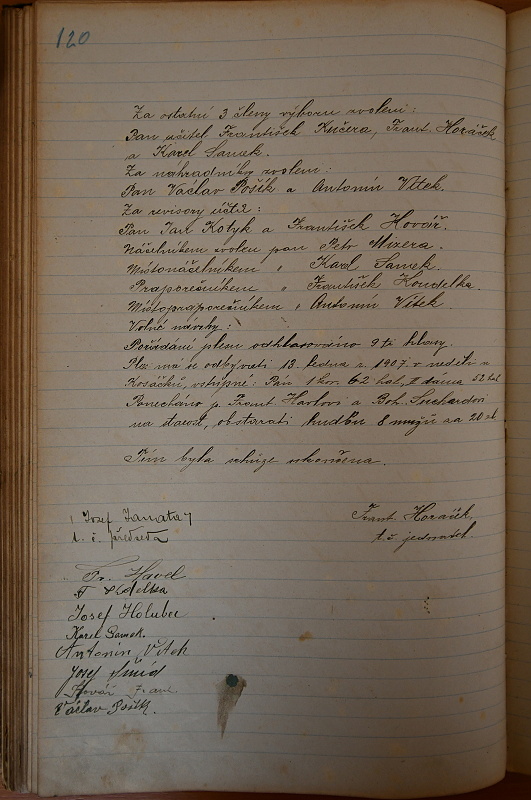 120
Za ostatní 3 členy výboru zvoleni:
Pan učitel František Kučera, Frant. Horáček
a Karel Samek.
Za náhradníky zvoleni:
Pan Václav Pošík a Antonín Vítek.
Za revisory účtů:
Pan Jan Kotyk a František Hovář.
Náčelníkem zvolen pan Petr Mizera.
Místonáčelníkem " Karel Samek.
Praporečníkem " František Koudelka.
Místopraporečníkem " Antonín Vítek.
Volné návrhy:
Pořádání plesu odhlasováno 9ti hlasy.
Ples má se odbývati 13. ledna r. 1907 v neděli u
Kosáčků, vstupné: Pán 1 kor. 62 hal, dáma 52 hal
Ponecháno p. Frant. Havlovi a Boh. Suchardovi
na starost, obstarati hudbu 8 mužů za 20 zl.
Tím byla schůze skončena.
Josef Janata
t. č. předseda
Frant. Horáček,
t. č. jednatel.
Fr. Havel
Josef Holubec
Karel Samek.
Antonín Vítek
Josef Šmíd
Hovář Frant.
Václav Pošík.